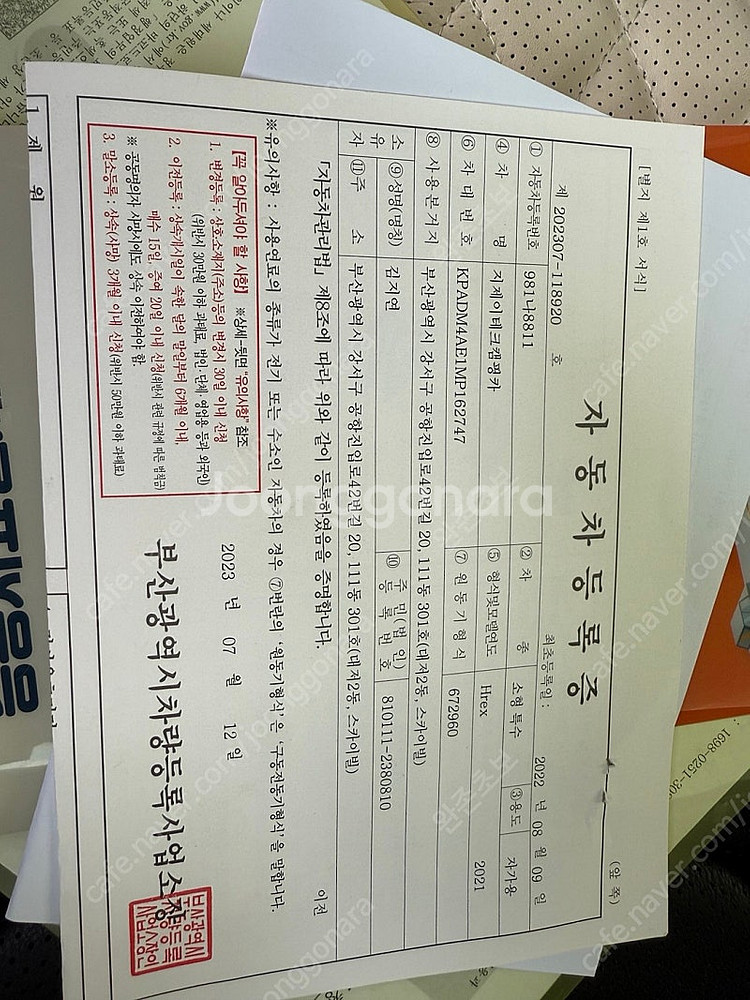 [별지 제1호 서식]
(앞 쪽)
자 동 차 등 록 증
제 202307-118920 호
최초등록일 : 2022 년 08 월 09 일
① 자동차등록번호 981나8811 ② 차 종 소형 특수 ③용도 자가용
④ 차 명 지제이테크캠핑카 ⑤ 형식및모델연도 Hrex 2021
⑥ 차 대 번 호 KPADM4AE1MP162747 ⑦ 원 동 기 형 식 672960
⑧ 사 용 본 거 지 부산광역시 강서구 공항진입로42번길 20, 111동 301호(대저2동, 스카이빌)
소 유 자
⑨성명(명칭) 김지연 ⑩ 주 민(법 인) 등 록 번 호 810111-2380810
⑪주 소 부산광역시 강서구 공항진입로42번길 20, 111동 301호(대저2동, 스카이빌)
「자동차관리법」 제8조에 따라 위와 같이 등록하였음을 증명합니다.
이전
※유의사항 : 사용연료의 종류가 전기 또는 수소인 자동차의 경우 ⑦번란의 '원동기형식'은 '구동전동기형식'을 말합니다.
[꼭 알아두셔야 할 사항] ※상세-뒷면 "유의사항" 참조
1. 변경등록 : 상호·소재지(주소)등의 변경시 30일 이내 신청
(위반시 30만원 이하 과태료, 법인·단체·영업용 등과 외국인)
2. 이전등록 : 상속개시일이 속한 달의 말일부터 6개월 이내,
매수 15일, 증여 20일 이내 신청(위반시 관련 규정에 따른 범칙금)
※ 공동명의자 사망시에도 상속 이전하여야 함.
3. 말소등록 : 상속(사망) 3개월 이내 신청(위반시 50만원 이하 과태료)
2023 년 07 월 12 일
부산광역시차량등록사업소장
Joonggonara
cafe.naver.com/joonggonara
완존초보